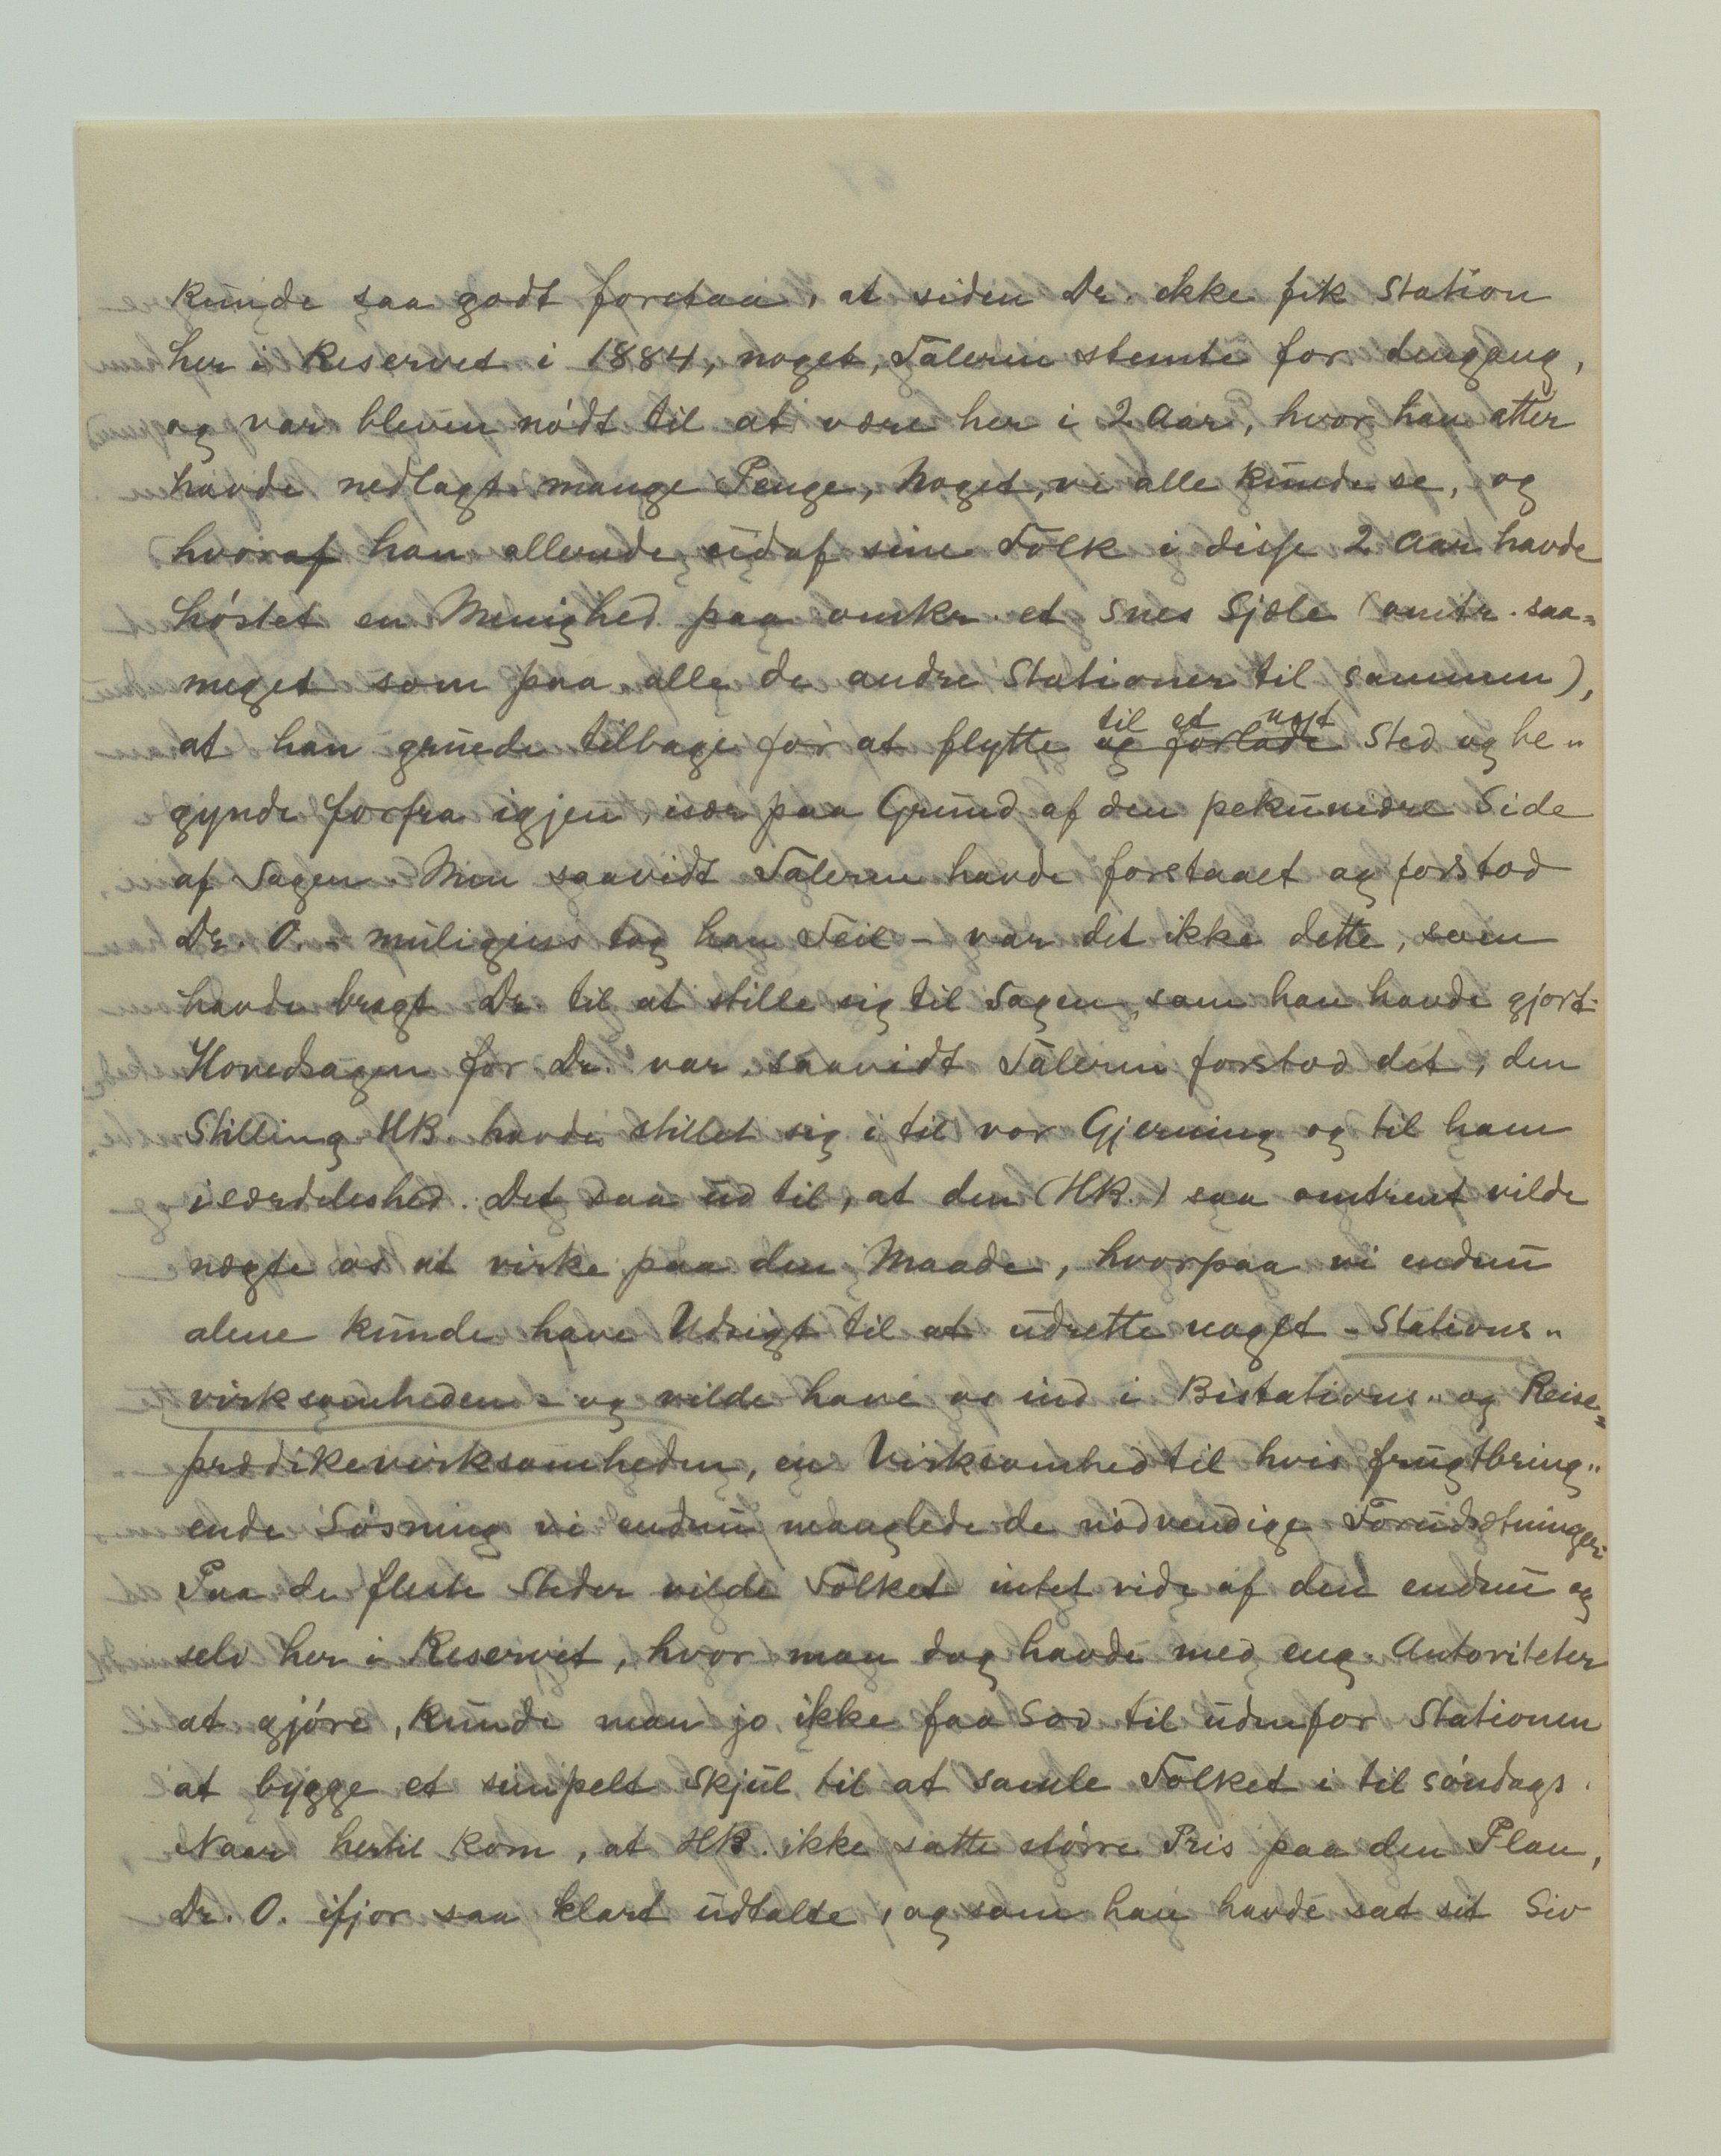 kunde saa godt forstaa, at siden Dr. ikke fik Station
her i Reservet i 1884, noget, Taleren stemte for dengang,
og var bleven nødt til at være her i 2 Aar, hvor han atter
havde nedlagt mange Penge, noget, vi alle kunde se, og
hvoraf han allerede udaf sine Folk i disse 2 Aar havde
høstet en Menighed paa omkr. et Snes Sjæle (omtr. saa=
meget som paa alle de andre Stationer til sammen),
at han gruede tilbage for at flytte og forlade til et nyt Sted og be„
gynde forfra igjen, især paa Grund af den pekuniære Side
af Sagen. Men saavidt Taleren havde forstaaet og forstod
Dr. O. – muligens tog han Feil – var det ikke dette, som
havde bragt Dr. til at stille sig til Sagen, som han havde gjort.
Hovedsagen for Dr. var, saavidt Taleren forstod det, den
Stilling HB. havde stillet sig i til vor Gjerning og til ham
isærdeleshed. Det saa ud til, at den (HB.) saa omtrent vilde
nægte os at virke paa den Maade, hvorpaa vi endnu
alene kunde have Udsigt til at udrette noget – Stations„
virksomheden – og vilde have os ind i Bistations„ og Reise=
prædikevirksomheden, en Virksomhed til hvis frugtbring„
ende Løsning vi endnu manglede de nødvendige Forudsætninger.
Paa de fleste Steder vilde Folket intet vide af den endnu og
selv her i Reservet, hvor man dog havde med eng. Autoriteter
at gjøre, kunde man jo ikke faa Lov til udenfor Stationen
at bygge et simpelt Skjul til at samle Folket i til søndags.
Naar hertil kom, at HB. ikke satte større Pris paa den Plan,
Dr. O. ifjor saa klart udtalte, og som han havde sat sit Liv